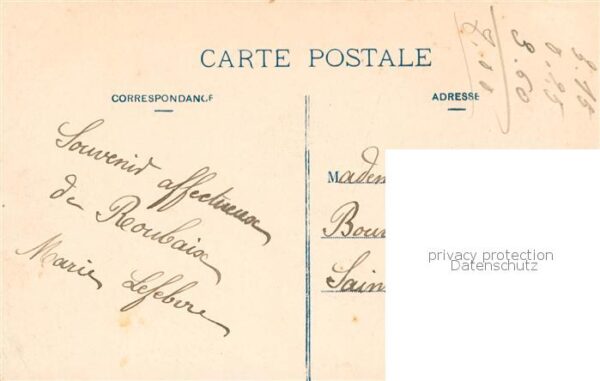 CARTE POSTALE
CORRESPONDANCE
ADRESSE
Souvenir affectueux
de Roubaix
Marie Lefebvre
Madem
Bou
Sain
3.15
0.45
3.60
7.00
privacy protection
Datenschutz